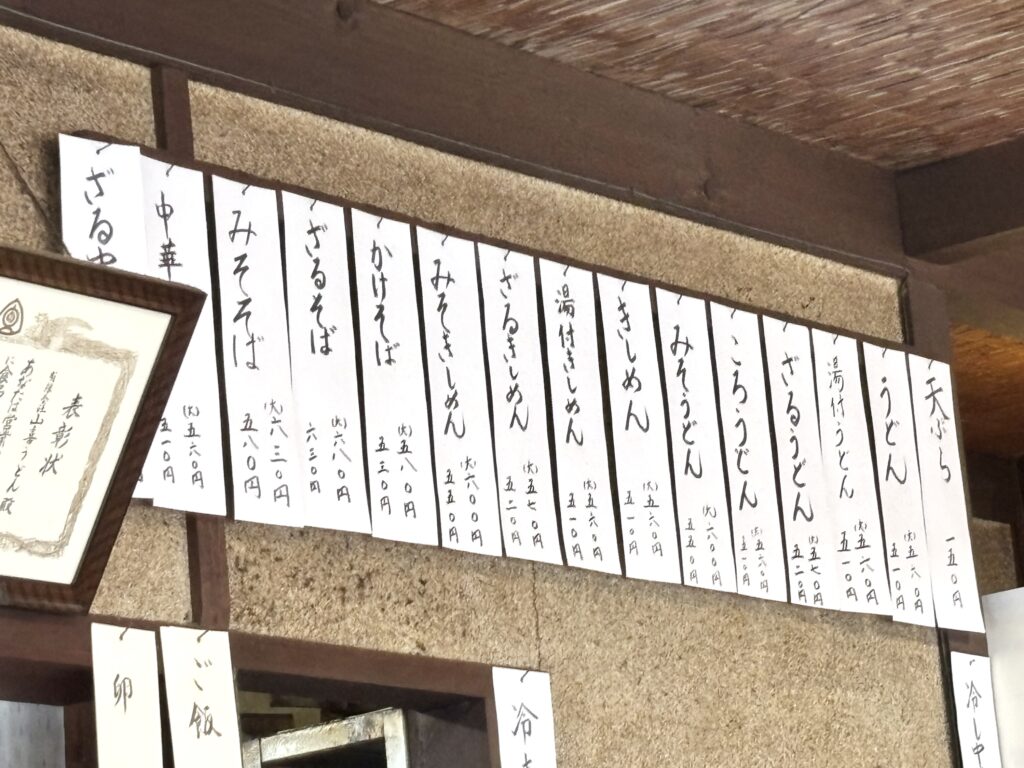 天ぷら 一五〇円
うどん (大)五六〇円
五一〇円
湯付うどん (大)五六〇円
五一〇円
ざるうどん (大)五七〇円
五二〇円
ころうどん (大)五六〇円
五一〇円
みそうどん (大)六〇〇円
五五〇円
きしめん (大)五六〇円
五一〇円
湯付きしめん (大)五六〇円
五一〇円
ざるきしめん (大)五七〇円
五二〇円
みそきしめん (大)六〇〇円
五五〇円
かけそば (大)五八〇円
五三〇円
ざるそば (大)六八〇円
六三〇円
みそそば (大)六三〇円
五八〇円
中華 (大)五六〇円
五一〇円
ざる中
表彰状
うどん殿
あなたは
冷し中
冷
ご飯
卵